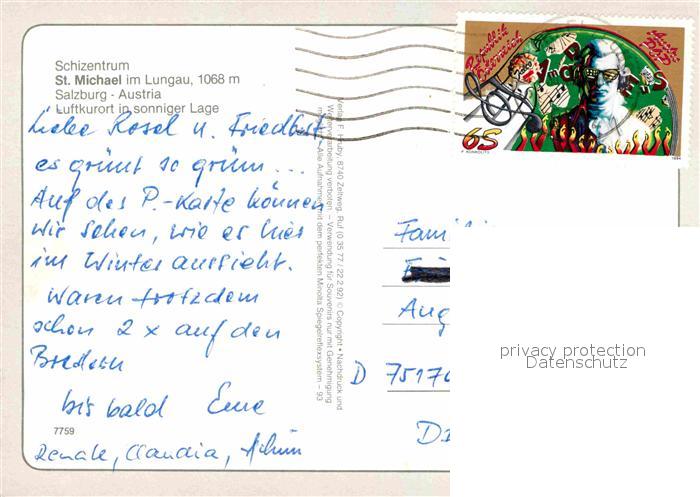 Schizentrum
St. Michael im Lungau, 1068 m
Salzburg - Austria
Luftkurort in sonniger Lage
Liebe Rosel u. Friedbert,
es grünt so grün...
Auf der P.-Karte können
wir sehen, wie es hier
im Winter aussieht.
Waren trotzdem
schon 2 x auf den
Brettern
bis bald Eure
Renate, Claudia, Achim
7759
Verlag F. Hruby, 8740 Zeltweg, Ruf (0 35 77 / 22 2 92) © Copyright • Nachdruck und
Weiterverarbeitung verboten. – Verwendung für Souvenirs nur mit Genehmigung
Alle Aufnahmen mit dem perfekten Minolta Spiegelreflexsystem – 93
Republik
Österreich
65
1994
Familie
Aug
D 7517
privacy protection
Datenschutz